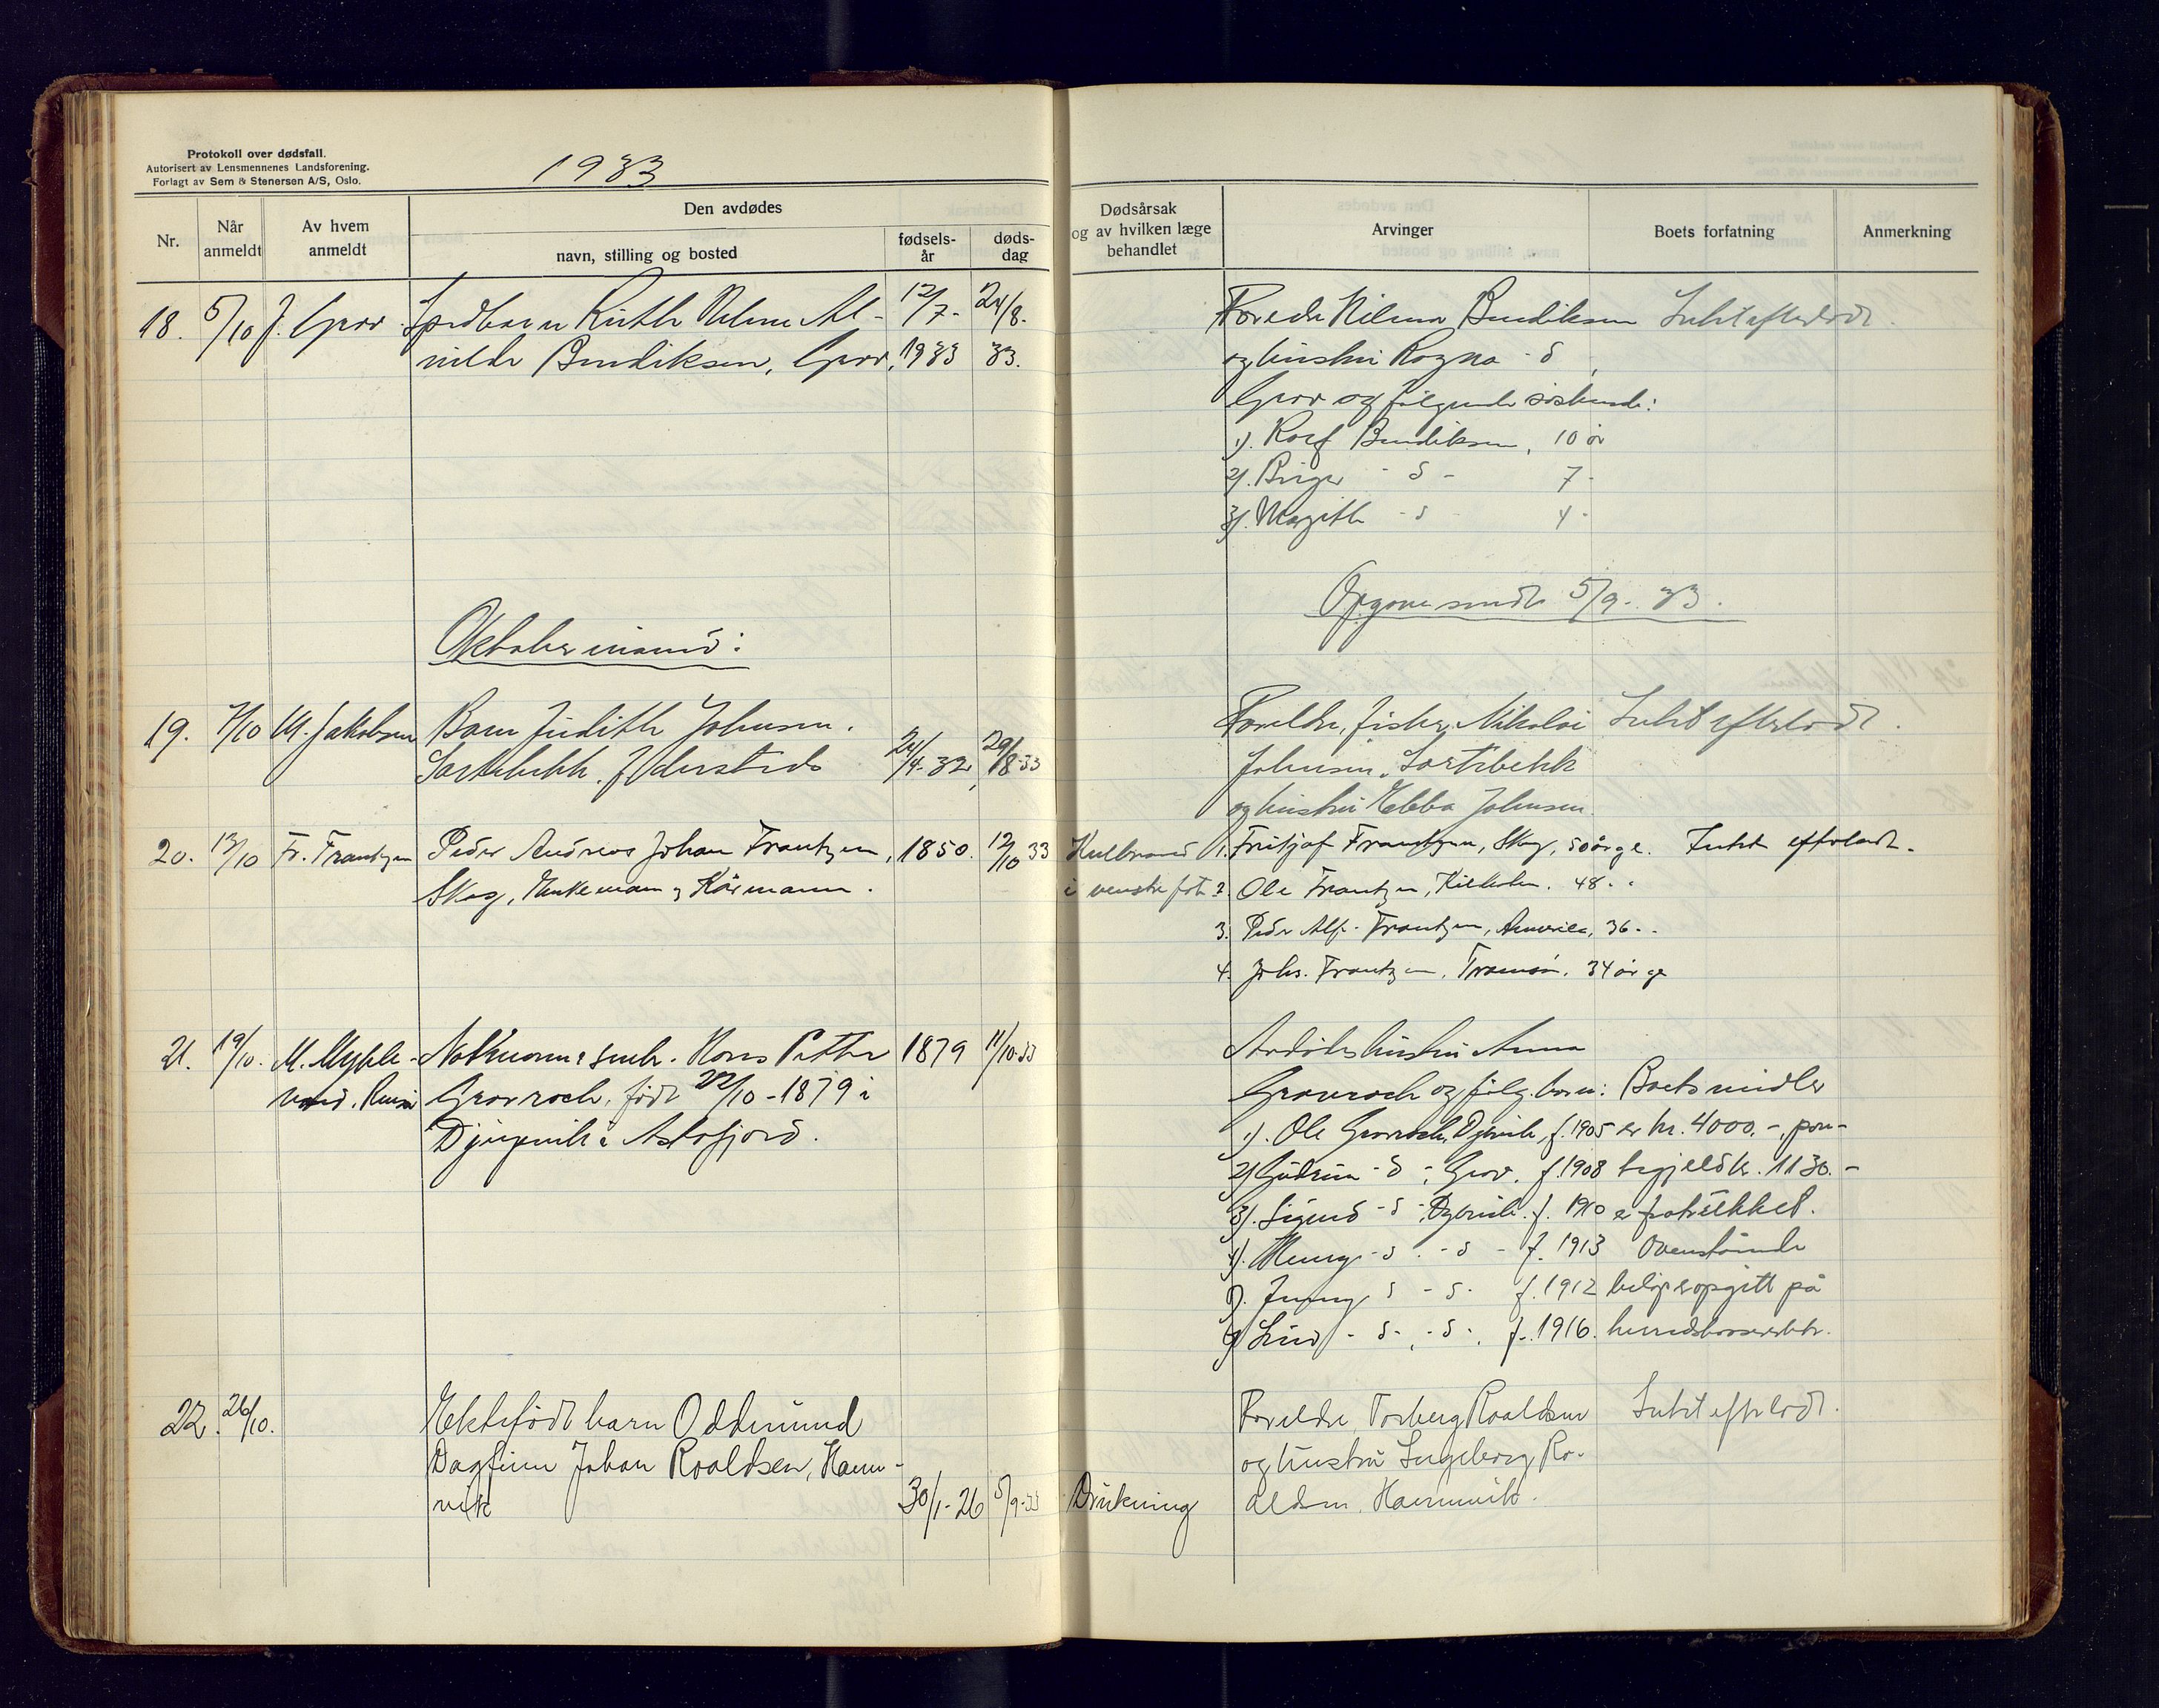 Protokoll over dødsfall.
Autorisert av Lensmennenes Landsforening.
Forlagt av Sem & Stenersen A/S, Oslo.
1933
Nr.
Når anmeldt
Av hvem anmeldt
Den avdødes
navn, stilling og bosted
fødsels-år
døds-dag
Dødsårsak og av hvilken læge behandlet
Arvinger
Boets forfatning
Anmerkning
18. 5/10 J. Grov Spedbarn Ruth Al- 12/7- 24/8-
Bendiksen, Grov, 1933 33.
Foreldre Bendiksen Intet efterladt.
og hustru Ragna -d
Grov og følgende søskende:
1). Bendiksen, 10 år
2). Birger -d- 7-
3). Margith -d- 4-
Opgave sendt 5/9-33.
Oktober måned:
19. 7/10 M. Jakobsen Barn Judith Johnsen.
24/4-32, 29/8-33
Foreldre, fisker Nikolai Intet efterladt.
Johnsen,
og hustru Ebba Johnsen.
20. 13/10 Fr. Frantzen Peder Andreas Johan Frantzen, 1850. 12/10 33
Skog, Enkemann, Kårmann.
Kulbrand
i venstre fot
1. Fritjof Frantzen, Skog, 50 årge. Intet efterladt.
2. Ole Frantzen, 48. "
3. Peder Alf. Frantzen, Amerika, 36. "
4. Johs. Frantzen, Tromsø, 34 årge
21. 19/10. M. Myhle- Hans Petter 1879 11/10-33
født 22/10-1879 i
Djupvik i Astafjord.
Avdødes hustru Anna
og følg. barn: Boets midler
1). Ole f. 1905 er kr. 4000.-, pan-
2) Gudrun -d-, Grov, f. 1908 tegjeld kr. 1130.-
3). Sigurd -d- f. 1910 er fratrukket.
4). Henry -d- -d- f. 1913 Ovenstående
5). Jenny d -d- f. 1912 beløp er opgitt på
6) -d-, -d-, f. 1916. herredskassererktr.
22. 26/10. Ektefødt barn Oddmund
Dagfinn Johan Roaldsen, Hamn-
vik 30/1-26 5/9-33 Drukning
Foreldre, Torberg Roaldsen Intet efterladt.
og hustru Ingeborg Ro-
aldsen, Hamnvik.